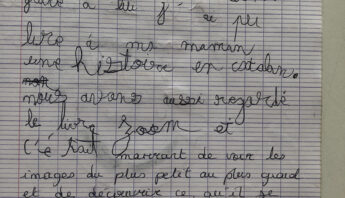 grâce à lui j'ai pu
lire à ma maman
une histoire en catalan.
nous avons aussi regardé
le livre zoom et
C'é tait marrant de voir les
images du plus petit au plus grand
et de découvrir ce qu'il se